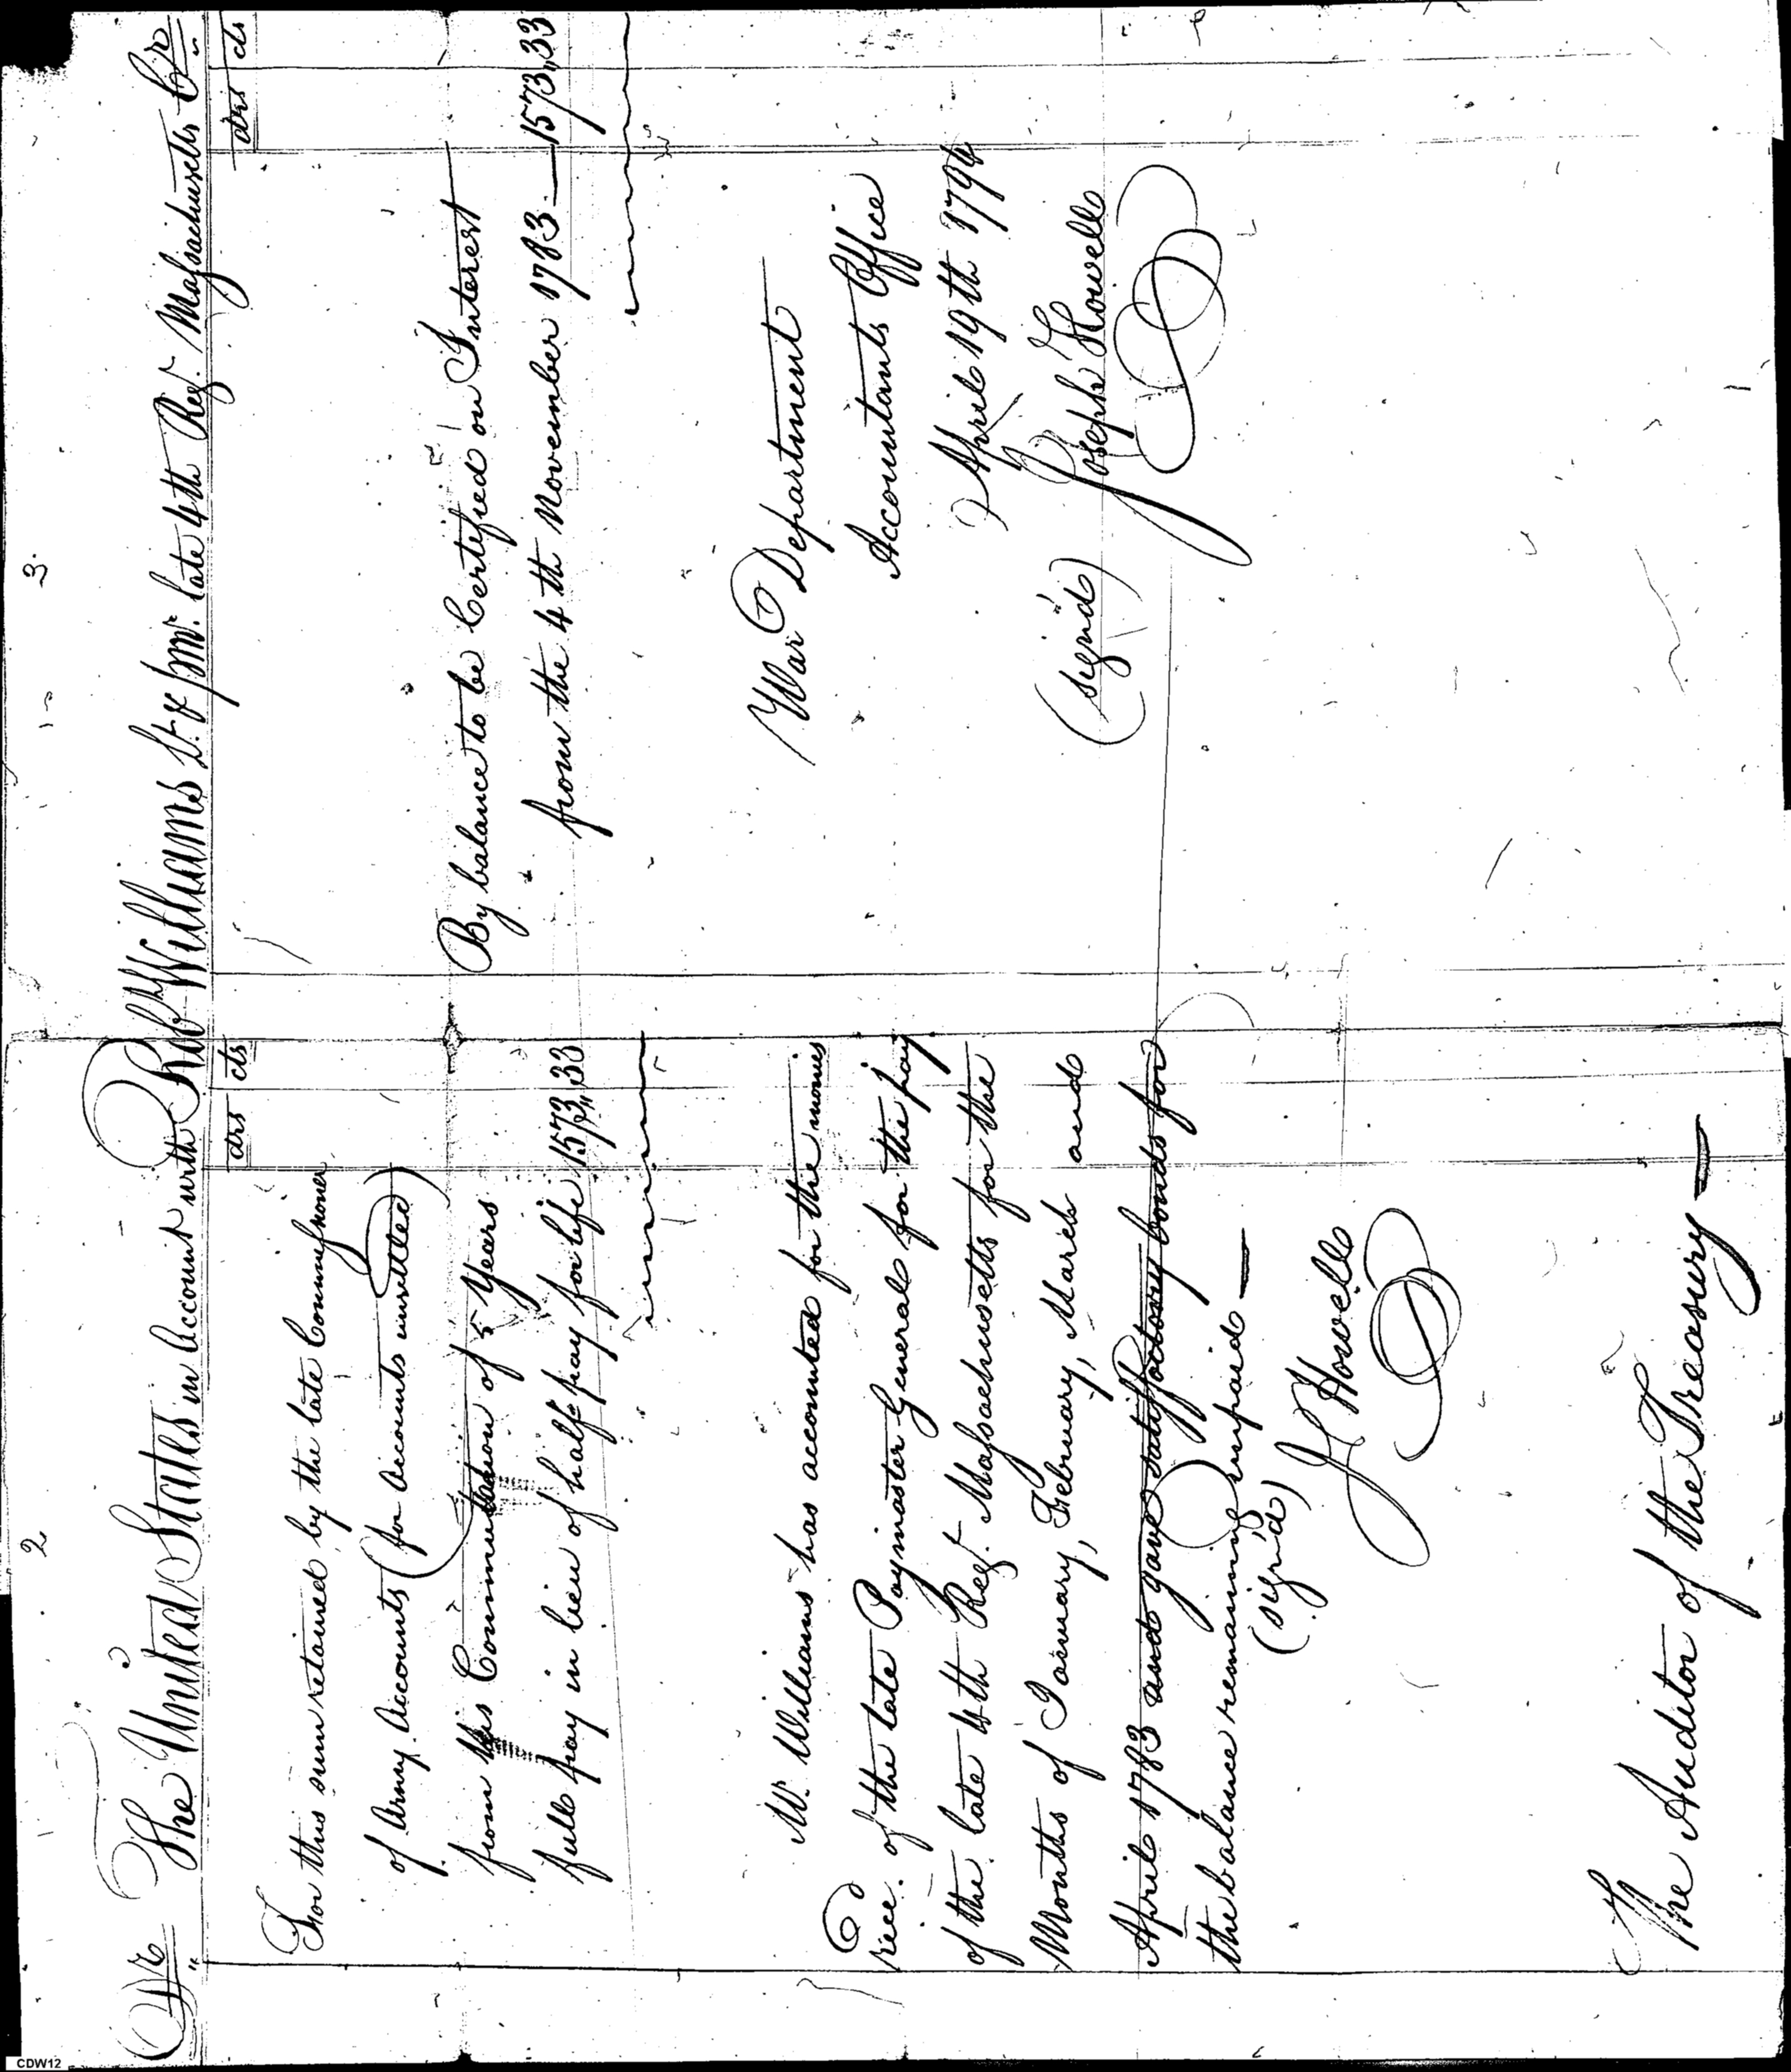 2
Dr The United States in Account with
drs cts
For this sum retained by the late Commissioner
of Army Accounts (for accounts unsettled)
from his Commutation of 5 Years
full pay in lieu of half pay for life 1573,,33
Mr. Williams has accounted for the monies
rece. of the late Paymaster General for the pay
of the late 4th Reg. Massachusetts for the
Months of January, February, March and
April 1783 and gave satisfactory bonds for
the balance remaining unpaid —
(sign'd) J Howell
The Auditor of the Treasury —
3.
Rob Williams Lt & pmr. late 4th Reg. Massachusetts Cr
drs cts
By balance to be Certified on Interest
from the 4th November 1783 — 1573,,33
War Department
Accountants Office
April 19th 1794
(sign'd) Joseph Howell
CDW12